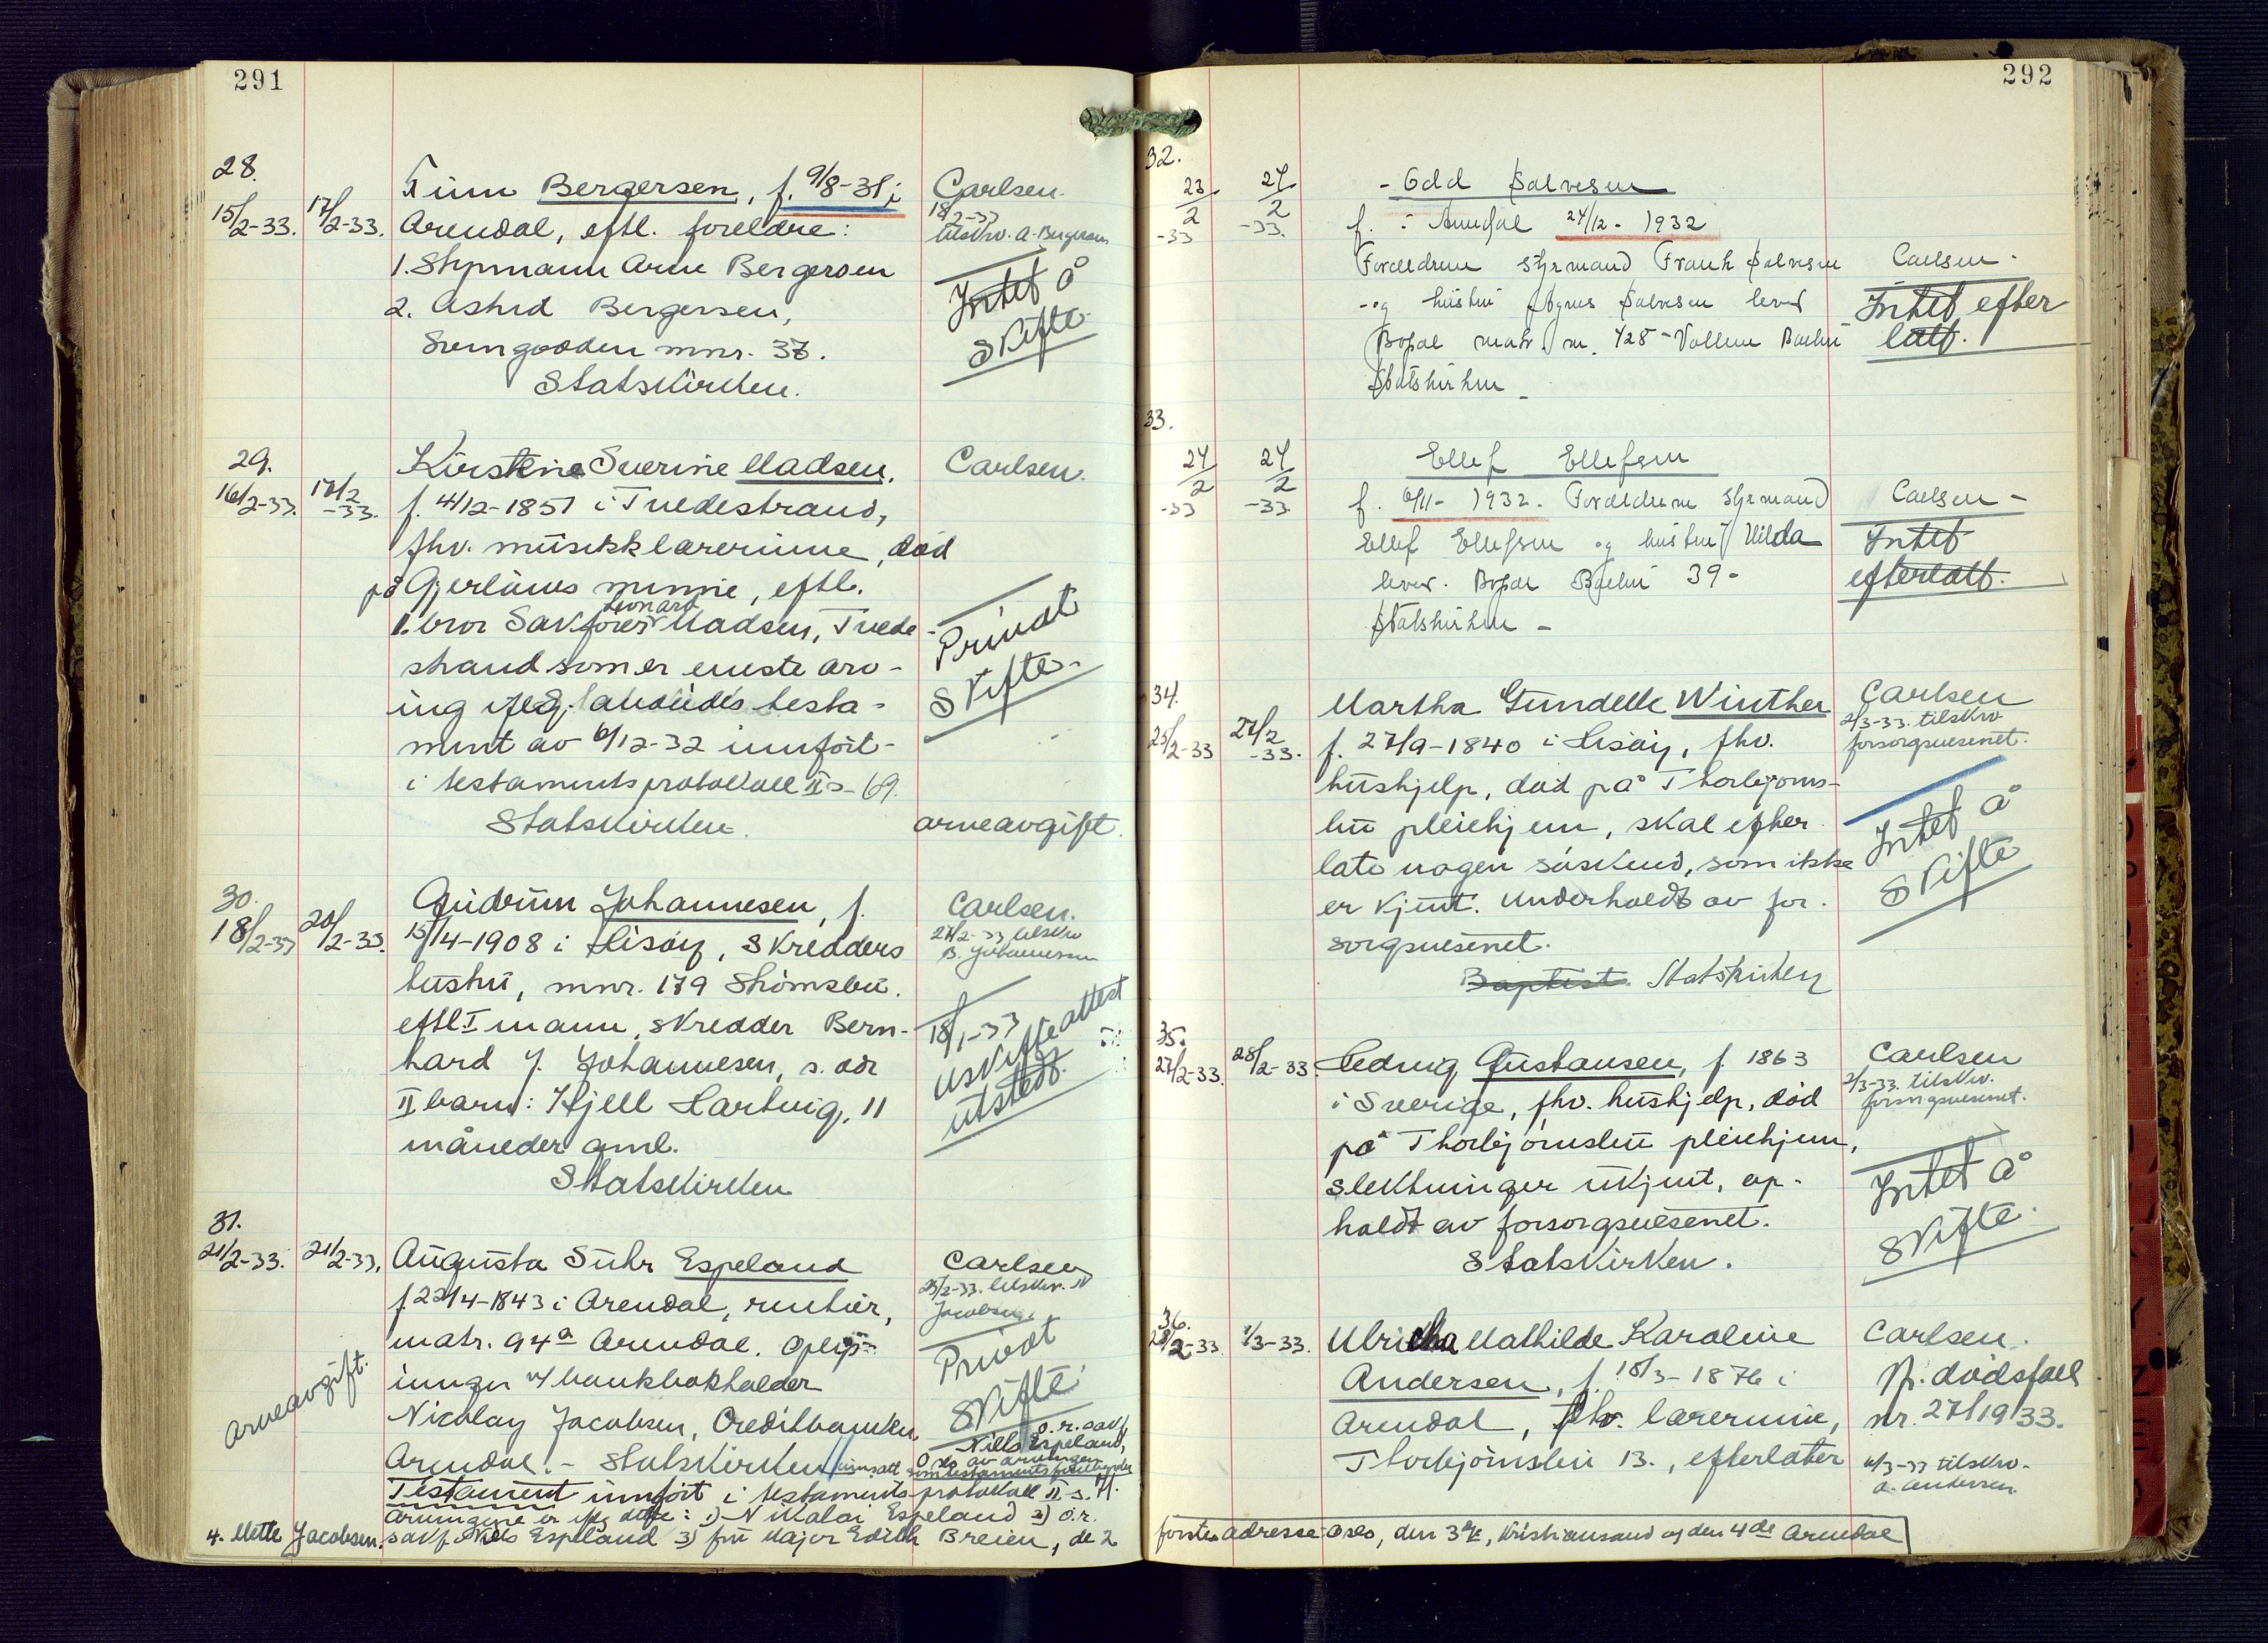 291
28.
15/2-33. 17/2-33. Finn Bergersen, f. 9/8-31 i Carlsen.
Arendal, eftl. foreldre: 18/2-33 tilskrv. A. Bergersen
1. Styrmann Arne Bergersen Intet å
2. Astrid Bergersen, skifte.
mnr. 37.
Statskirken.
29.
16/2-33. 17/2-33. Kirstine Severine Madsen, Carlsen.
f. 4/12-1851 i Tvedestrand,
fhv. musikklærerinne, død
på Gjerløws minne, eftl.
1. bror Sakfører Leonard Madsen, Tvede-
strand som er eneste arv- Privat
ing ifølg. avdødes testa- skifte.
ment av 6/12-32 innført
i testamentsprotokoll II s. 69.
Statskirken. arveavgift.
30.
18/2-33 20/2-33. Gudrun Johannesen, f. Carlsen.
15/4-1908 i Hisøy, skredders 27/2-33 tilskrv
hustru, mnr. 179 Strømsbu. B. Johannesen
eftl I mann, skredder Bern- 18/1-33
hard J. Johannesen, s. dør uskifteattest
II barn: Kjell Hartvig, 11 utstedt.
måneder gml.
Statskirken
31.
21/2-33. 21/2-33. Augusta Suhr Espeland Carlsen
f. 22/4-1843 i Arendal, rentier, 23/2-33. tilskrv. N
matr. 94a Arendal. Oplys- Jacobsen.
ninger v/ bankbokholder Privat
Nicolay Jacobsen, Creditbanken, skifte.
Arendal. - Statskirken o.r.sakf. Niels Espeland,
Arveavgift.
Oslo av arvingene som testamentsfuldbyrder
Testament innført i testaments-protokoll II s. 71.
Arvingene er ifølg dette: 1) Nikolai Espeland 2) o.r.
sakf. Niels Espeland 3) fru Major Edith Breien, de 2
4. Mette Jacobsen.
292
32.
23/2-33 24/2-33. Odd Salvesen
f. i Arendal 24/12-1932
Forældrene styrmand Frank Salvesen Carlsen -
og hustru Agnes Salvesen lever Intet efter
Bopæl matr. nr. 428 - Vollene Barbu latt.
Statskirken -
33.
24/2-33 24/2-33 Ellef Ellefsen
f. 6/11-1932. Forældrene styrmand Carlsen -
Ellef Ellefsen og hustru Hilda Intet
lever. Bopæl Barbu 39- efterlatt.
Statskirken -
34.
25/2-33 27/2-33. Martha Gundelle Winther Carlsen
f. 27/9-1840 i Hisøy, fhv. 2/3-33. tilskrv
hushjelp, død på Thorbjørns- forsorgsvesenet.
bu pleiehjem, skal efter Intet å
late nogen søskend, som ikke skifte
er kjent. Underholdt av for-
sorgsvesenet.
Baptist. Statskirken
35.
27/2-33. 28/2-33. Hedvig Gustavsen, f. 1863 Carlsen
i Sverige, fhv. hushjelp, død 2/3-33. tilskrv.
på Thorbjørnsbu pleiehjem, forsorgsvesenet.
slektninger ukjent, op- Intet å
holdt av forsorgsvesenet. skifte.
Statskirken.
36.
28/2-33 1/3-33. Ulricha Mathilde Karoline Carlsen.
Andersen, f. 18/3-1876 i dødsfall
Arendal, fhv. lærerinne, nr. 27/1933.
Thorbjørnsbu 13., efterlater 4/3-33 tilskrv.
A. Andersen.
førstes adresse Oslo, den 3de, Kristiansand og den 4de Arendal